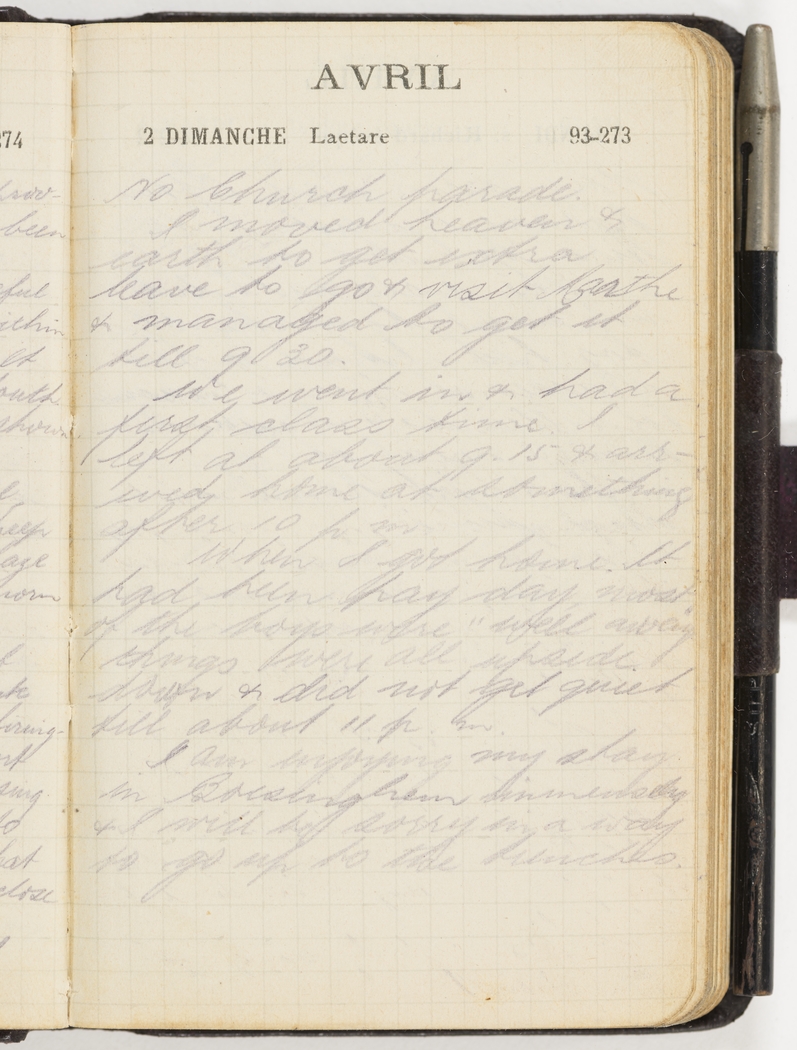 AVRIL
274
2 DIMANCHE Laetare 93-273
No Church parade.
I moved heaven &
earth to get extra
leave to go & visit Marthe
& managed to get it
till 9 30.
We went in & had a
first class time. I
left at about 9.15 & arr-
ived home at something
after 10 p m
When I got home. It
had been pay day most
of the boys were "well away"
things were all upside
down & did not get quiet
till about 11 p. m.
I am enjoying my stay
in immensely
& I will be sorry in a way
to go up to the trenches.